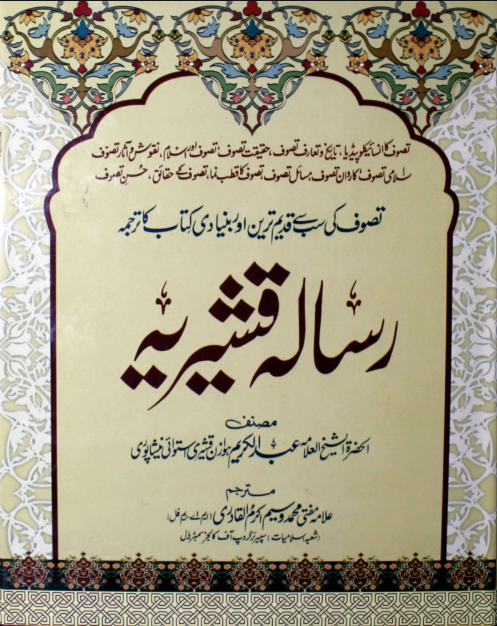 تصوف کا انسائیکلوپیڈیا، تاریخ و تعارف تصوف، حقیقت تصوف، تصوف اور اسلام، نقوش و آثار تصوف
اسلامی تصوف، کاروان تصوف، مسائل تصوف، تصوف کا قطب نما، تصوف کے حقائق، حسن تصوف
تصوف کی سب سے قدیم ترین اور بنیادی کتاب کا ترجمہ
رسالہ قشیریہ
مصنف
الحضرۃ الشیخ العلامہ عبد الکریم ہوازن قشیری استوائی نیشاپوری
مترجم
علامہ مفتی محمد وسیم اکرم القادری (ایم اے، ایم فل)
(شعبہ اسلامیات) سپیریئر گروپ آف کالجز سمبڑیال